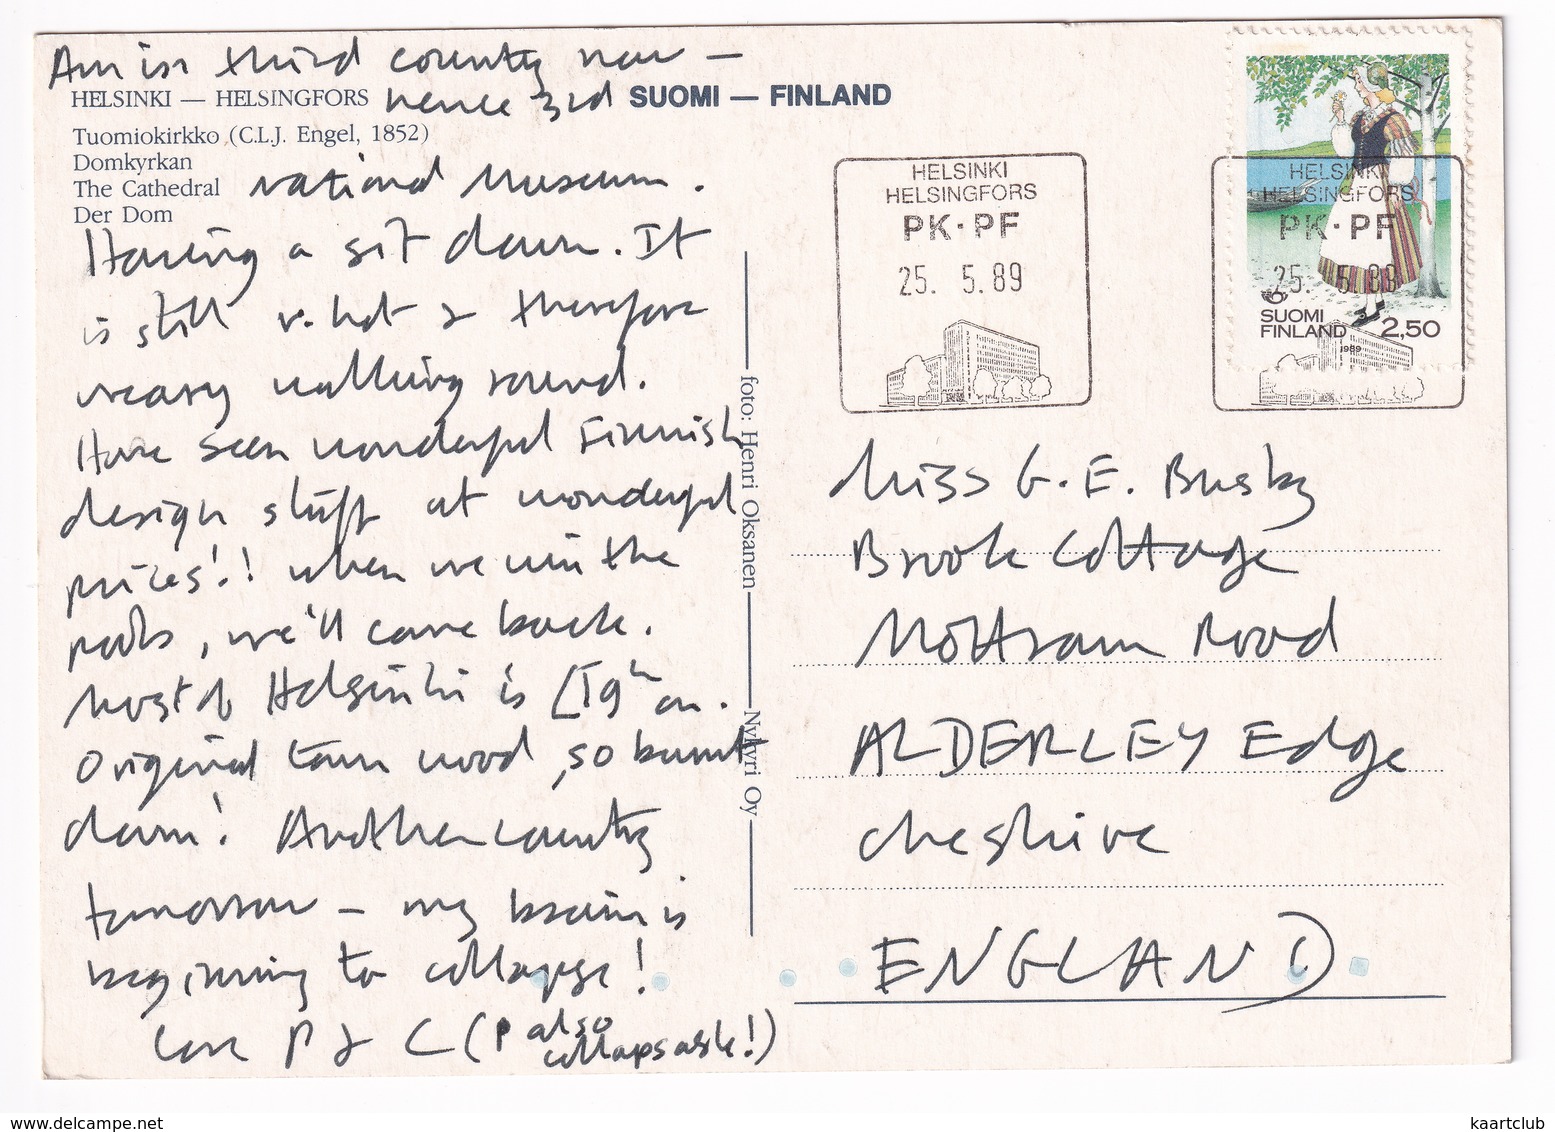 Am in third country now —
hence 3rd
HELSINKI — HELSINGFORS
SUOMI — FINLAND
Tuomiokirkko (C.L.J. Engel, 1852)
Domkyrkan
The Cathedral
Der Dom
national museum.
Having a sit down. It
is still v. hot & therefore
weary walking round.
Have seen wonderful Finnish
design stuff at wonderful
prices!! When we win the
pools, we'll come back.
Most of Helsinki is 19th on.
Original town wood, so burnt
down! Another country
tomorrow — my brain is
beginning to collapse!
Love P & C (P also
collapsable!)
foto: Henri Oksanen
Nykyri Oy
HELSINKI
HELSINGFORS
PK·PF
25. 5.89
HELSINKI
HELSINGFORS
PK·PF
25. 5.89
SUOMI
FINLAND 2,50
1989
Miss G. E. Busby
Brook Cottage
Mottram Road
ALDERLEY Edge
Cheshire
ENGLAND
www.delcampe.net
kaartclub